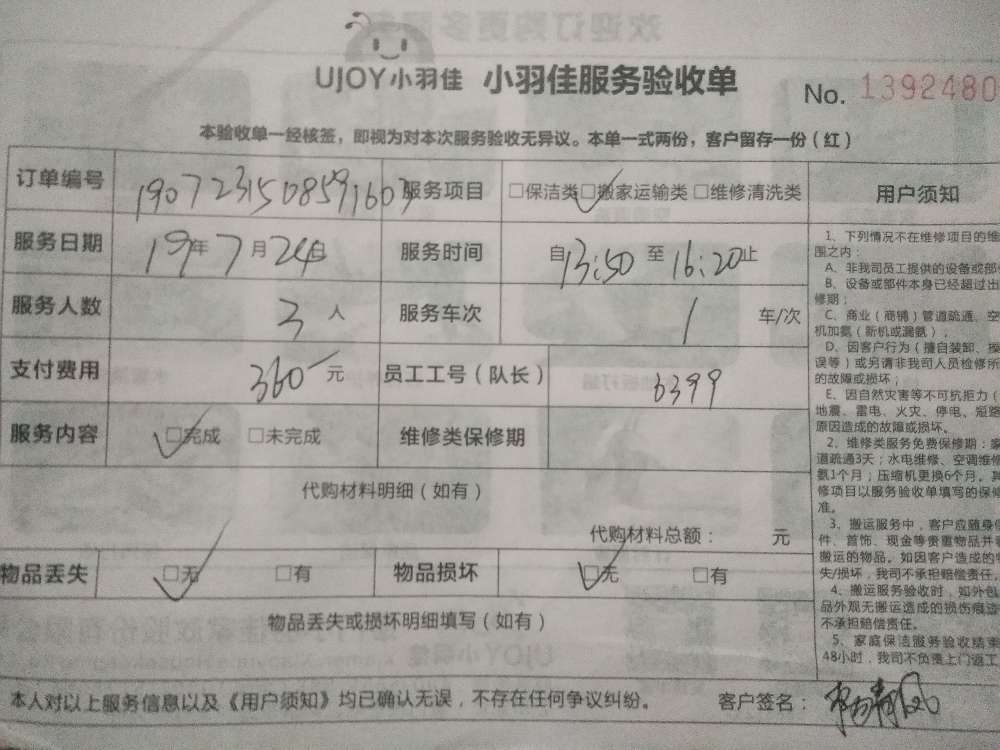 UJOY小羽佳 小羽佳服务验收单 No. 1392480
本验收单一经核签，即视为对本次服务验收无异议。本单一式两份，客户留存一份（红）
订单编号 190723150859160 服务项目 □保洁类 □搬家运输类 □维修清洗类
服务日期 19年7月24日 服务时间 自13:50至16:20止
服务人数 3人 服务车次 1 车/次
支付费用 360元 员工工号（队长） 6399
服务内容 □完成 □未完成 维修类保修期
代购材料明细（如有）
代购材料总额： 元
物品丢失 □无 □有 物品损坏 □无 □有
物品丢失或损坏明细填写（如有）
本人对以上服务信息以及《用户须知》均已确认无误，不存在任何争议纠纷。 客户签名： 杨青凤
用户须知
1、下列情况不在维修项目的维
围之内：
A、非我司员工提供的设备或部
B、设备或部件本身已经超过出
修期；
C、商业（商铺）管道疏通、空
机加氨（新机或漏氨）；
D、因客户行为（擅自装卸、操
误等）或另请非我司人员检修所
的故障或损坏；
E、因自然灾害等不可抗拒力（
地震、雷电、火灾、停电、短路
原因造成的故障或损坏。
2、维修类服务免费保修期：家
道疏通3天；水电维修、空调维修
氨1个月；压缩机更换6个月。其
修项目以服务验收单填写的保修
准。
3、搬运服务中，客户应随身
件、首饰、现金等贵重物品并
搬运的物品。如因客户造成的
失/损坏，我司不承担赔偿责任
4、搬运服务验收时，如外包
品外观无搬运造成的损伤痕迹
不承担赔偿责任。
5、家庭保洁服务验收结束
48小时，我司不负责上门返工